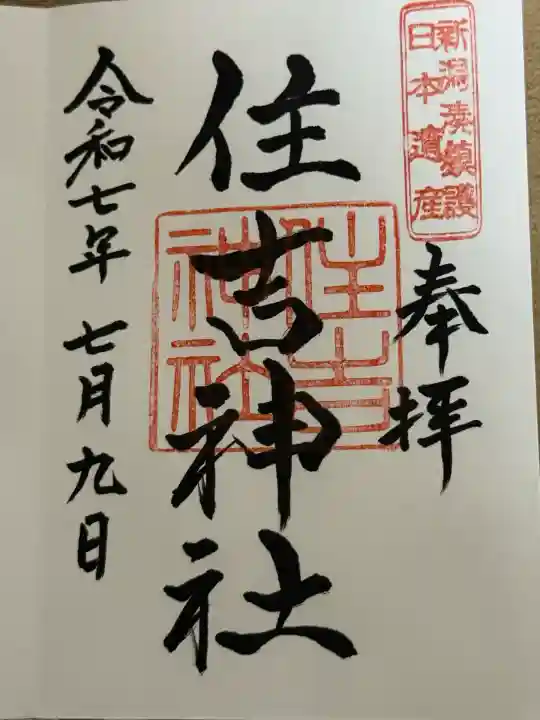 新潟湊鎮護
日本遺産
奉拝
住吉神社
住吉
神社
令和七年 七月 九日